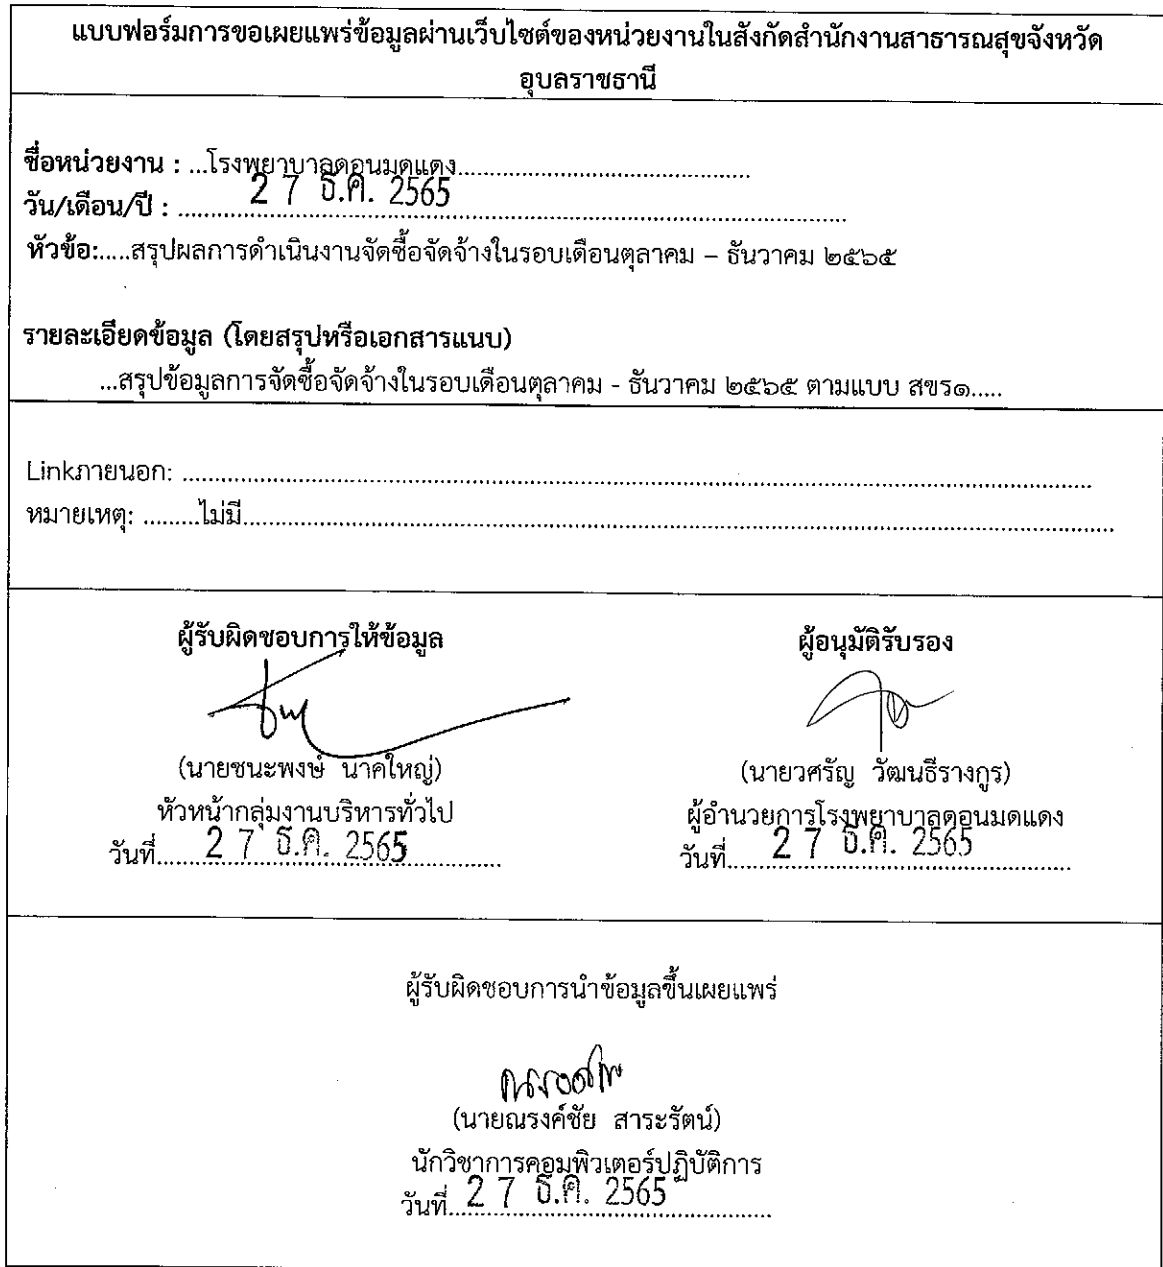 แบบฟอร์มการขอเผยแพร่ข้อมูลผ่านเว็บไซต์ของหน่วยงานในสังกัดสำนักงานสาธารณสุขจังหวัด
อุบลราชธานี
ชื่อหน่วยงาน : ...โรงพยาบาลดอนมดแดง................................................
วัน/เดือน/ปี : ............27 ธ.ค. 2565................................................................
หัวข้อ:.....สรุปผลการดำเนินงานจัดซื้อจัดจ้างในรอบเดือนตุลาคม – ธันวาคม ๒๕๖๕
รายละเอียดข้อมูล (โดยสรุปหรือเอกสารแนบ)
...สรุปข้อมูลการจัดซื้อจัดจ้างในรอบเดือนตุลาคม - ธันวาคม ๒๕๖๕ ตามแบบ สขร๑.....
Linkภายนอก: ................................................................................................
หมายเหตุ: .........ไม่มี................................................................................................
ผู้รับผิดชอบการให้ข้อมูล
ผู้อนุมัติรับรอง
(นายชนะพงษ์ นาคใหญ่)
(นายวศรัญ วัฒนธีรางกูร)
หัวหน้ากลุ่มงานบริหารทั่วไป
ผู้อำนวยการโรงพยาบาลดอนมดแดง
วันที่.......27 ธ.ค. 2565...............
วันที่.......27 ธ.ค. 2565...............
ผู้รับผิดชอบการนำข้อมูลขึ้นเผยแพร่
(นายณรงค์ชัย สาระรัตน์)
นักวิชาการคอมพิวเตอร์ปฏิบัติการ
วันที่..27 ธ.ค. 2565...............